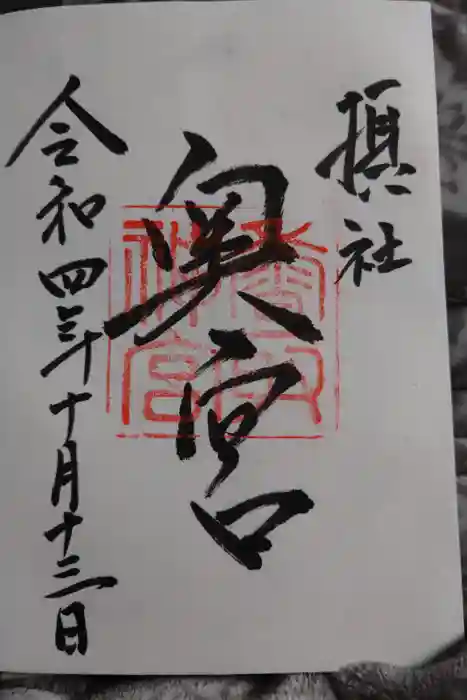 摂社
奥宮
香取
神宮
令和四年十月十三日